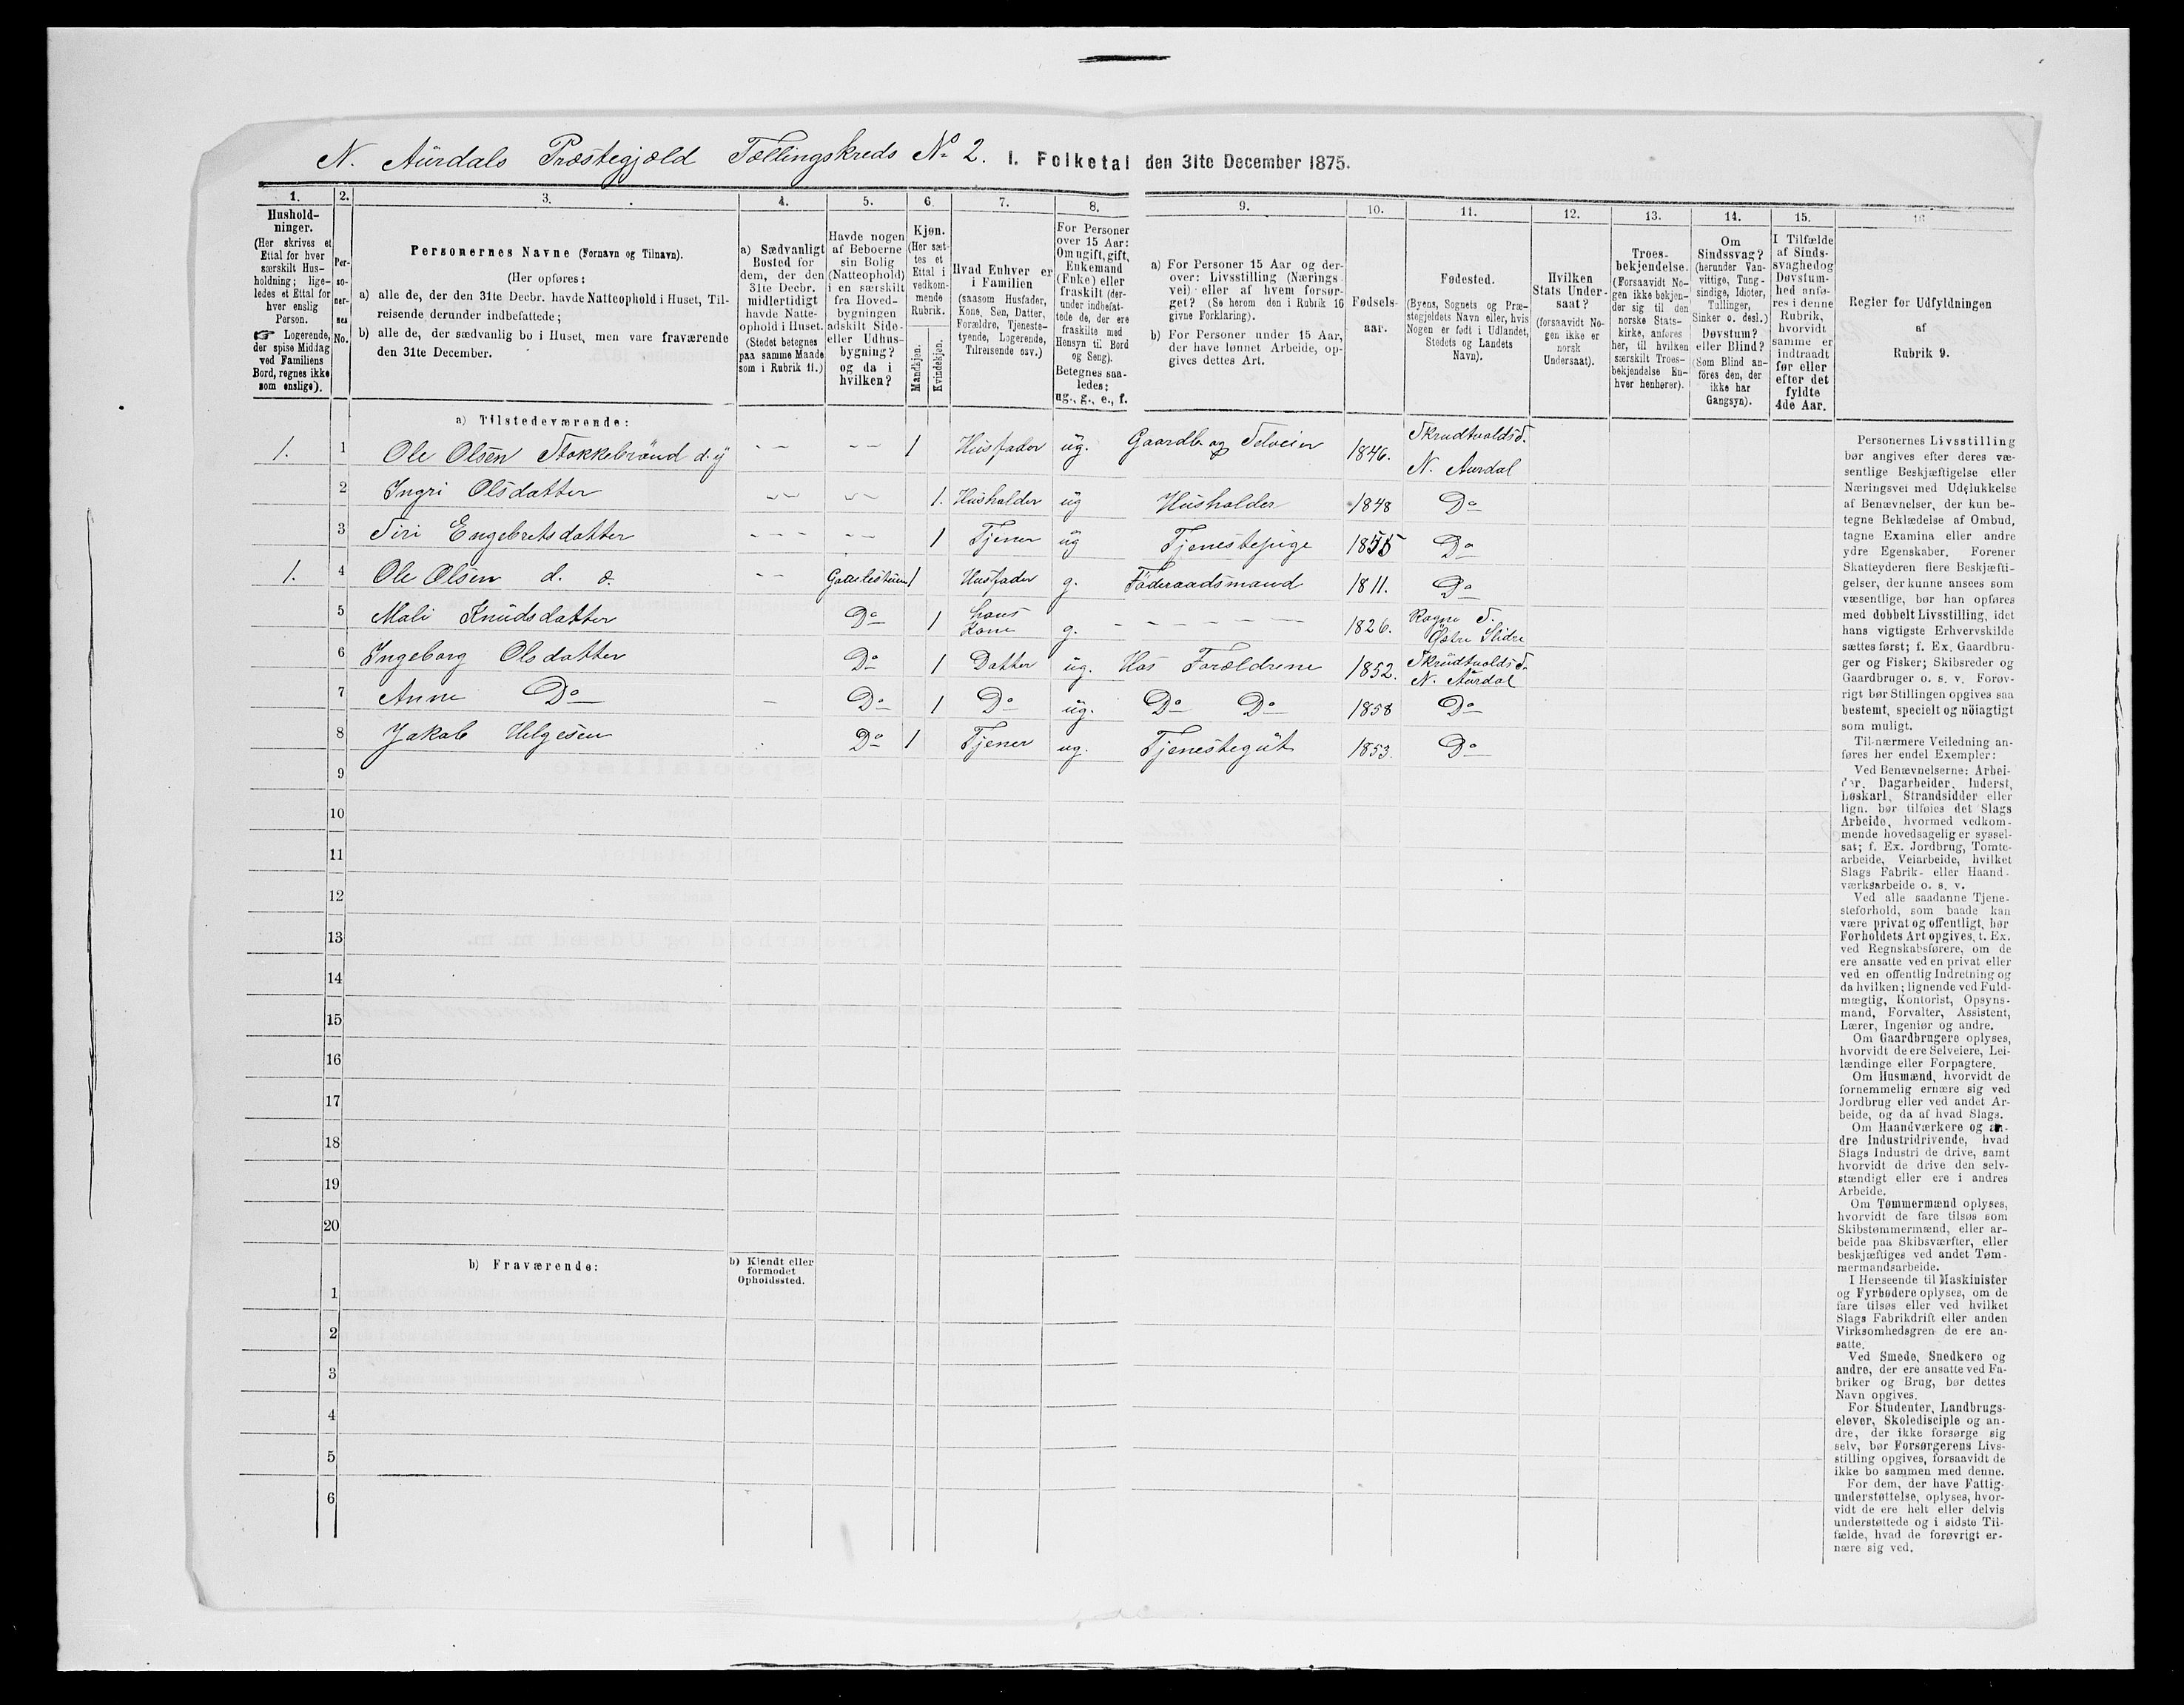 N. Aürdals Præstegjæld Tællingskreds No 2. I. Folketal den 31te December 1875.
1. 2. 3. 4. 5. 6. 7. 8. 9. 10. 11. 12. 13. 14. 15. 16
Hushold-
ninger.
(Her skrives et
Ettal for hver
særskilt Hus-
holdning; lige-
ledes et Ettal for
hver enslig
Person.
☞ Logerende,
der spise Middag
ved Familiens
Bord, regnes ikke
som enslige).
Per-
so-
ner-
nes
No.
Personernes Navne (Fornavn og Tilnavn).
(Her opføres:
a) alle de, der den 31te Decbr. havde Natteophold i Huset, Til-
reisende derunder indbefattede;
b) alle de, der sædvanlig bo i Huset, men vare fraværende
den 31te December.
a) Sædvanligt
Bosted for
dem, der den
31te Decbr.
midlertidigt
havde Natte-
ophold i Huset.
(Stedet betegnes
paa samme Maade
som i Rubrik 11.)
Havde nogen
af Beboerne
sin Bolig
(Natteophold)
i en særskilt
fra Hoved-
bygningen
adskilt Side-
eller Udhus-
bygning?
og da i
hvilken?
Kjøn.
(Her sæt-
tes et
Ettal i
vedkom-
mende
Rubrik.
Mandkjøn.
Kvindekjøn.
Hvad Enhver er
i Familien
(saasom Husfader,
Kone, Søn, Datter,
Forældre, Tjeneste-
tyende, Logerende,
Tilreisende osv.)
For Personer
over 15 Aar:
Om ugift, gift,
Enkemand
(Enke) eller
fraskilt (der-
under indbefat-
tede de, der ere
fraskilte med
Hensyn til Bord
og Seng).
Betegnes saa-
ledes:
ug., g., e., f.
a) For Personer 15 Aar og der-
over: Livsstilling (Nærings-
vei) eller af hvem forsør-
get? (Se herom den i Rubrik 16
givne Forklaring).
b) For Personer under 15 Aar,
der have lønnet Arbeide, op-
gives dettes Art.
Fødsels-
aar.
Fødested.
(Byens, Sognets og Præ-
stegjeldets Navn eller, hvis
Nogen er født i Udlandet,
Stedets og Landets
Navn).
Hvilken
Stats Under-
saat?
(forsaavidt No-
gen ikke er
norsk
Undersaat).
Troes-
bekjendelse.
(Forsaavidt No-
gen ikke bekjen-
der sig til den
norske Stats-
kirke, anføres
her, til hvilken
særskilt Troes-
bekjendelse En-
hver henhører).
Om
Sindssvag?
(herunder Van-
vittige, Tung-
sindige, Idioter,
Tullinger,
Sinker o. desl.)
Døvstum?
eller Blind?
(Som Blind an-
føres den, der
ikke har
Gangsyn).
I Tilfælde
af Sinds-
svaghed og
Døvstum-
hed anfø-
res i denne
Rubrik,
hvorvidt
samme er
indtraadt
før eller
efter det
fyldte
4de Aar.
Regler for Udfyldningen
af
Rubrik 9.
a) Tilstedeværende:
1. 1 Ole Olsen Stokkebrönd d. y - - - - 1 Husfader ug. Gaardb. og Selveier 1846. Skrudtvolds S. N. Aurdal
2 Ingri Olsdatter - - - - 1. Husholder ug Husholder 1848 Do
3 Siri Engebretsdatter - - - - - 1 Tjener ug Tjenestepige 1855 Do
1. 4 Ole Olsen d. æ. - - 1 Husfader g. Föderaadsmand 1811. Do
5 Mali Knüdsdatter Do 1 hans Kone g. - - - - - - 1826. Rogne S. Östre Slidre
6 Ingeborg Olsdatter Do 1 Datter ug. Hos Forældrene 1852. Skrüdtvolds S. N. Aürdal
7 Anne Do - Do 1 Do ug. Do Do 1858 Do
8 Jakob Helgesen Do 1 Tjener ug. Tjenestegüt 1853. Do
9
10
11
12
13
14
15
16
17
18
19
20
b) Fraværende: b) Kjendt eller
formodet
Opholdssted.
1
2
3
4
5
6
Personernes Livsstilling
bør angives efter deres væ-
sentlige Beskjæftigelse eller
Næringsvei med Udelukkelse
af Benævnelser, der kun be-
tegne Beklædelse af Ombud,
tagne Examina eller andre
ydre Egenskaber. Forener
Skatteyderen flere Beskjæfti-
gelser, der kunne ansees som
væsentlige, bør han opføres
med dobbelt Livsstilling, idet
hans vigtigste Erhvervskilde
sættes først; f. Ex. Gaardbru-
ger og Fisker; Skibsreder og
Gaardbruger o. s. v. Forøv-
rigt bør Stillingen opgives saa
bestemt, specielt og nöiagtigt
som muligt.
Til nærmere Veiledning an-
føres her endel Exempler:
Ved Benævnelserne: Arbei-
der, Dagarbeider, Inderst,
Løskarl, Strandsidder eller
lign. bør tilføies det Slags
Arbeide, hvormed vedkom-
mende hovedsagelig er syssel-
sat; f. Ex. Jordbrug, Tomte-
arbeide, Veiarbeide, hvilket
Slags Fabrik- eller Haand-
værksarbeide o. s. v.
Ved alle saadanne Tjene-
steforhold, som baade kan
være privat og offentligt, bør
Forholdets Art opgives, t. Ex.
ved Regnskabsførere, om de
ere ansatte ved en privat eller
ved en offentlig Indretning og
da hvilken; lignende ved Fuld-
mægtig, Kontorist, Opsyns-
mand, Forvalter, Assistent,
Lærer, Ingeniør og andre.
Om Gaardbrugere oplyses,
hvorvidt de ere Selveiere, Lei-
lændinge eller Forpagtere.
Om Husmænd, hvorvidt de
fornemmelig ernære sig ved
Jordbrug eller ved andet Ar-
beide, og da af hvad Slags.
Om Haandværkere og an-
dre Industridrivende, hvad
Slags Industri de drive, samt
hvorvidt de drive den selv-
stændigt eller ere i andres
Arbeide.
Om Tømmermænd oplyses,
hvorvidt de fare tilsøs som
Skibstømmermænd, eller ar-
beide paa Skibsværfter, eller
beskjæftiges ved andet Tøm-
mermandsarbeide.
I Henseende til Maskinister
og Fyrbødere oplyses, om de
fare tilsøs eller ved hvilket
Slags Fabrikdrift eller anden
Virksomhedsgren de ere an-
satte.
Ved Smede, Snedkere og
andre, der ere ansatte ved Fa-
briker og Brug, bør dettes
Navn opgives.
For Studenter, Landbrugs-
elever, Skoledisciple og an-
dre, der ikke forsørge sig
selv, bør Forsørgerens Livs-
stilling opgives, forsaavidt de
ikke bo sammen med denne.
For dem, der have Fattig-
understøttelse, oplyses, hvor-
vidt de ere helt eller delvis
understøttede og i sidste Til-
fælde, hvad de forøvrigt er-
nære sig ved.